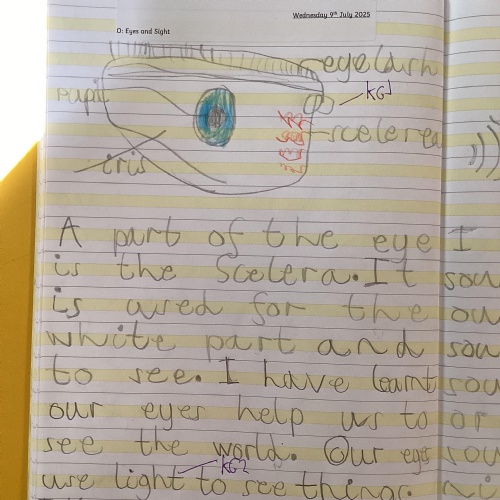 Wednesday 9th July 2025
O: Eyes and Sight
eyelash
Pupil
KG1
scelerea
iris
A part of the eye I
is the Scelera. It sou
is used for the ou
white part and sou
to see. I have learnt sou
our eyes help us to or
see the world. Our eyes sou
KG2
use light to see thing. ni